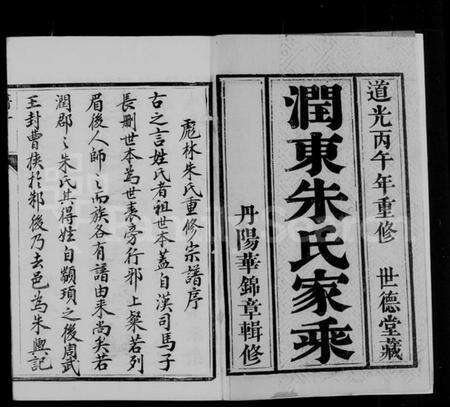 道光丙午年重修　世德堂藏
潤東朱氏家乘
丹陽華錦章輯修
彪林朱氏重修宗譜序
古之言姓氏者祖世本蓋自漢司馬子
長刪世本為世表旁行邪上粲若列
眉後人師之而族各有譜由来尚矣若
潤郡之朱氏其得姓自顓頊之後周武
王封曹挾於邾後乃去邑為朱輿記